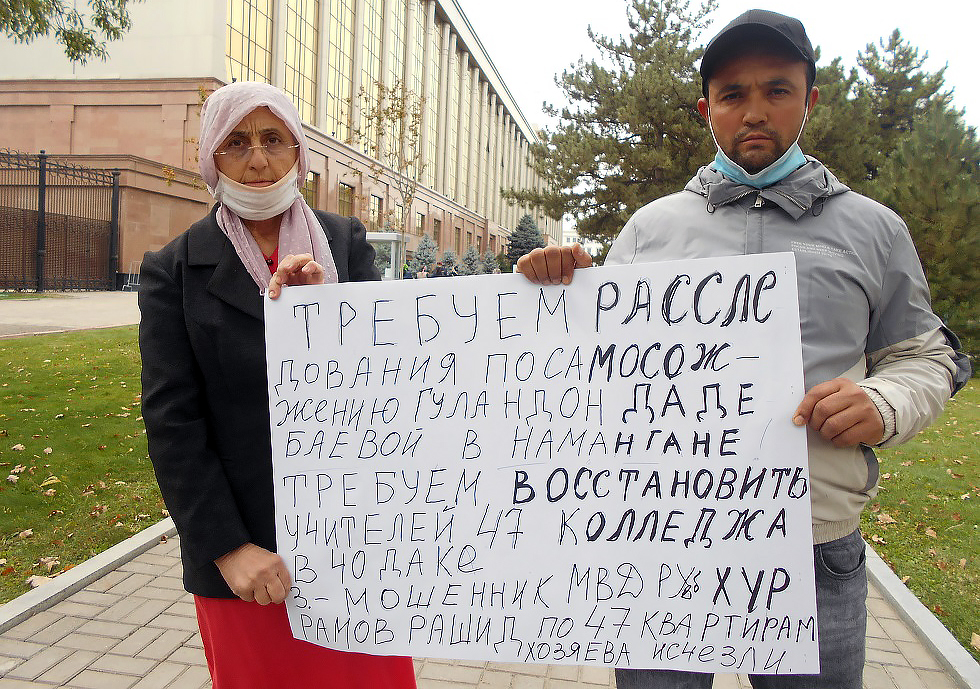 ТРЕБУЕМ РАССЛЕ
ДОВАНИЯ ПОСАМОСОЖ-
ЖЕНИЮ ГУЛАНДОН ДАДЕ
БАЕВОЙ В НАМАНГАНЕ
ТРЕБУЕМ ВОССТАНОВИТЬ
УЧИТЕЛЕЙ 47 КОЛЛЕДЖА
В ЧОДАКЕ
3.- МОШЕННИК МВД РУз ХУР
РАМОВ РАШИД ПО 47 КВАРТИРАМ
ХОЗЯЕВА ИСЧЕЗЛИ.